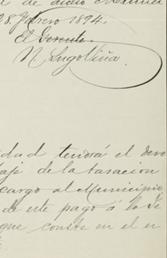 de dicho
28. Febrero 1894.
El Gerente
N Lugo Viña
idad tendrá el dere
aje de la tasacion
cargo al Municipio
de este pago á la Te
que conste en el ex